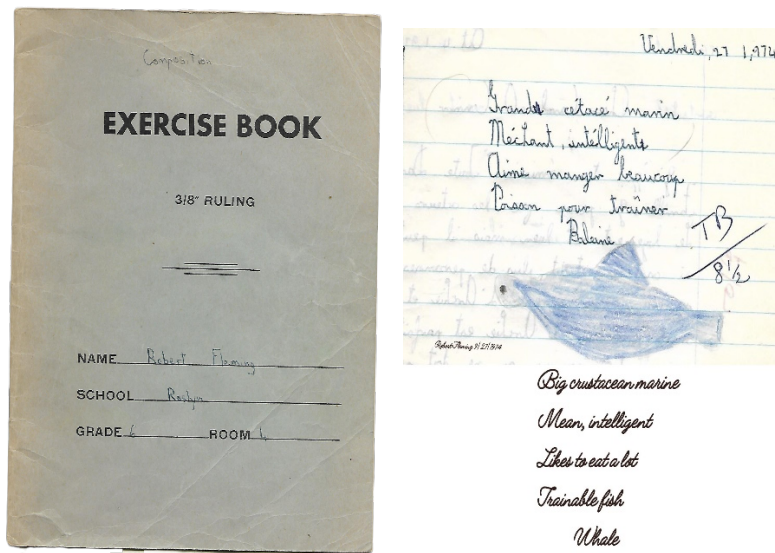 Composition
EXERCISE BOOK
3/8" RULING
NAME Robert Fleming
SCHOOL Roslyn
GRADE 6 ROOM 4
Vendredi, 27 1,974
Grande cétacé marin
Méchant, intélligents
Aime manger beaucoup
Poisson pour traîner
Baleine
TB
8 1/2
Robert Fleming 9/27/1974
Big crustacean marine
Mean, intelligent
Likes to eat a lot
Trainable fish
Whale